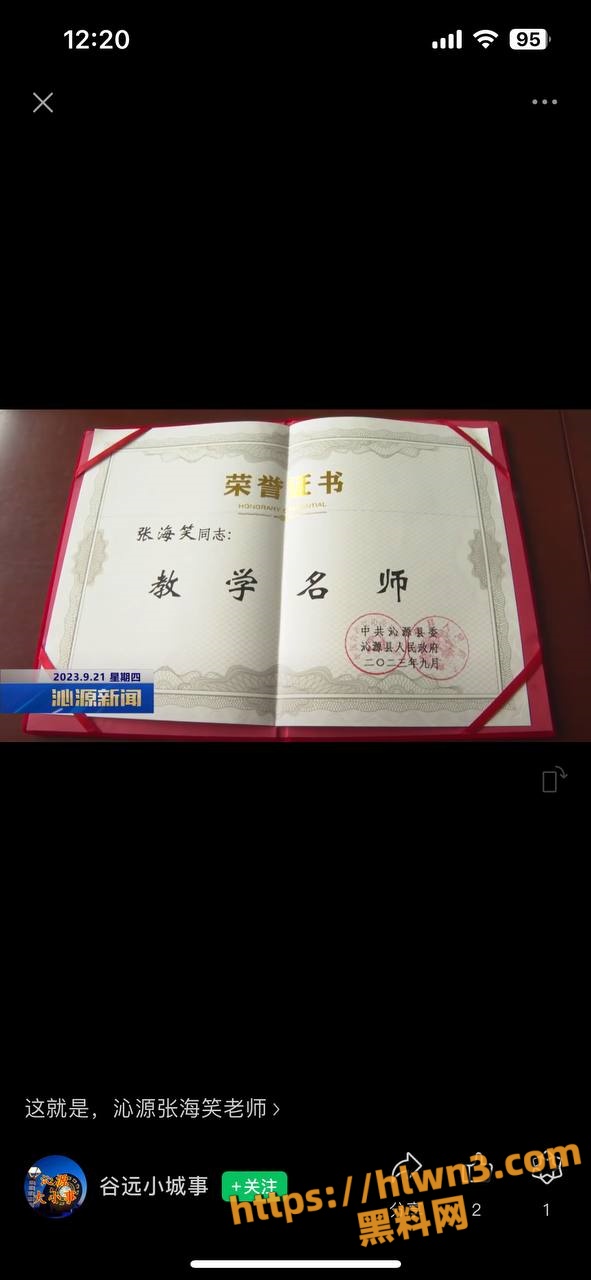 12:20
95
荣誉证书
HONORARY CREDENTIAL
张海笑同志:
教学名师
中共沁源县委
沁源县人民政府
二〇二三年九月
2023.9.21 星期四
沁源新闻
这就是，沁源张海笑老师
沁源
大小事
谷远小城事
+关注
分享
2
1
https://hlwn3.com
黑料网